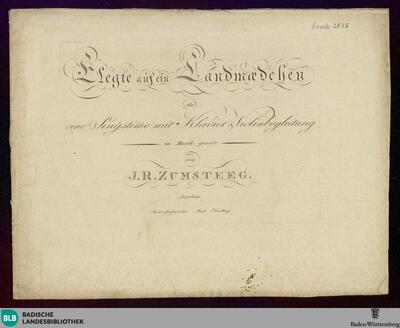 Elegie auf ein Landmædchen
für
eine Singstime mit Klavier & Violinbegleitung
in Musik gesetzt
von
J.R. ZUMSTEEG.
Augsburg
In der Gombartischen Musik Handlung
BLB
BADISCHE
LANDESBIBLIOTHEK
Baden-Württemberg